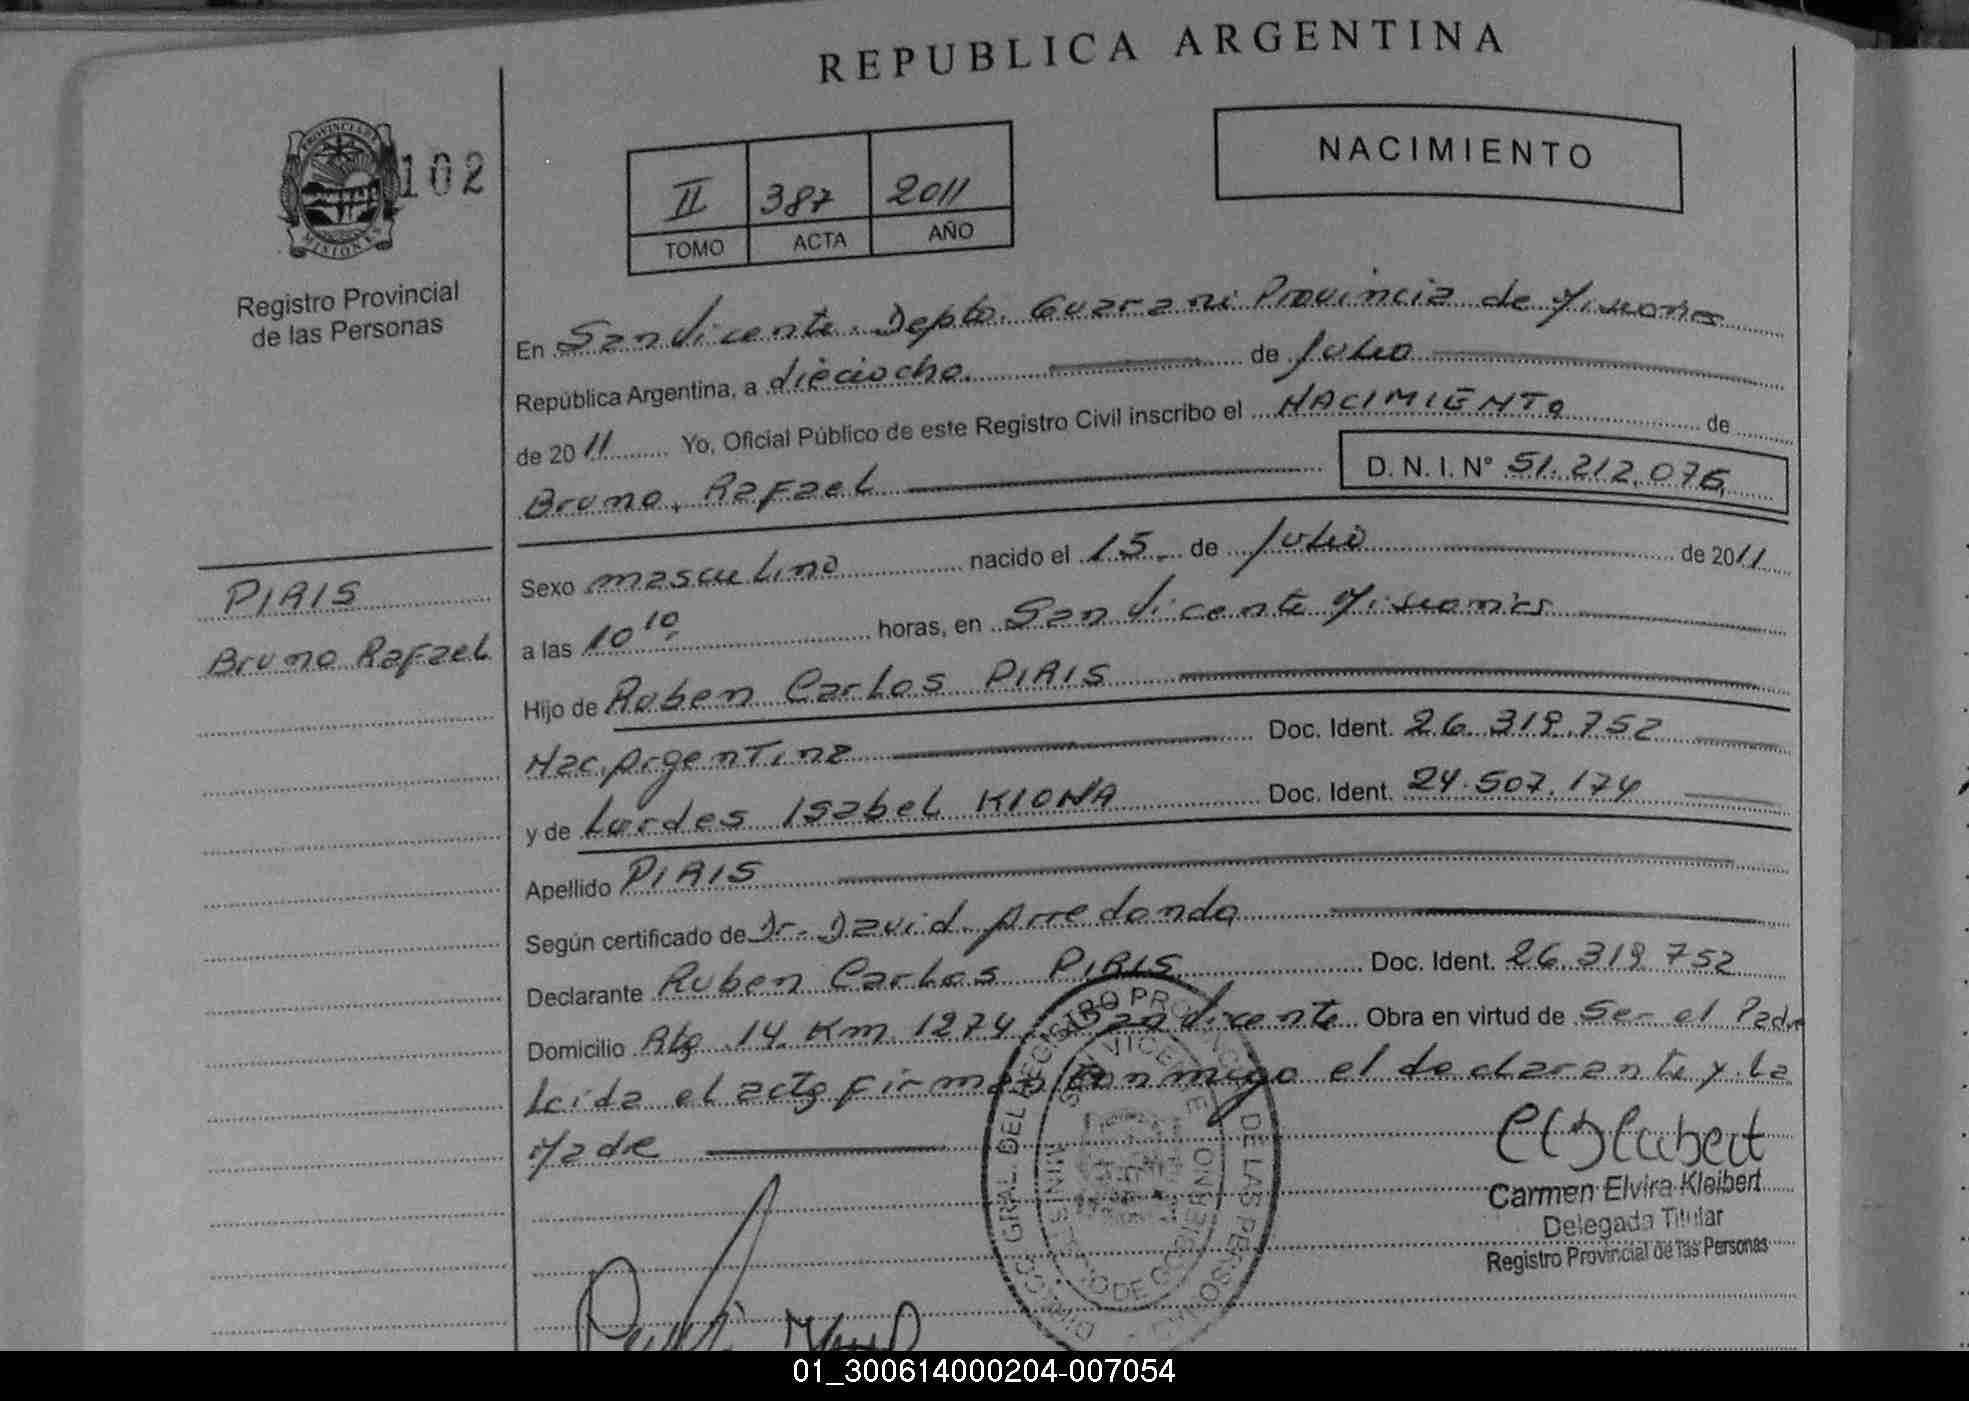 REPUBLICA ARGENTINA
PROVINCIA DE
MISIONES
102
Registro Provincial
de las Personas
II 387 2011
TOMO ACTA AÑO
NACIMIENTO
En San Vicente. Depto. Guarani Provincia de Misiones
República Argentina, a dieciocho. de Julio
de 2011 Yo, Oficial Público de este Registro Civil inscribo el NACIMIENTO de
Bruno, Rafael D. N. I. N° 51.212.076
PIRIS
Bruno Rafael
Sexo masculino nacido el 15 de Julio de 2011
a las 10 10 horas, en San Vicente Misiones
Hijo de Ruben Carlos PIRIS
Nac. Argentina Doc. Ident. 26.319.752
y de Lurdes Isabel KIONA Doc. Ident. 24.507.174
Apellido PIRIS
Según certificado de Dr. David Arredondo
Declarante Ruben Carlos PIRIS Doc. Ident. 26.319 752
Domicilio Rta 14 Km 1274 San Vicente Obra en virtud de Ser el Padre
Leida el acta firman conmigo el declarante y la
Madre
DIRECC. GRAL. DEL REGISTRO PROVINCIAL DE LAS PERSONAS
SAN VICENTE
MINISTERIO DE GOBIERNO
Carmen Elvira Kleibert
Delegada Titular
Registro Provincial de las Personas
01_300614000204-007054